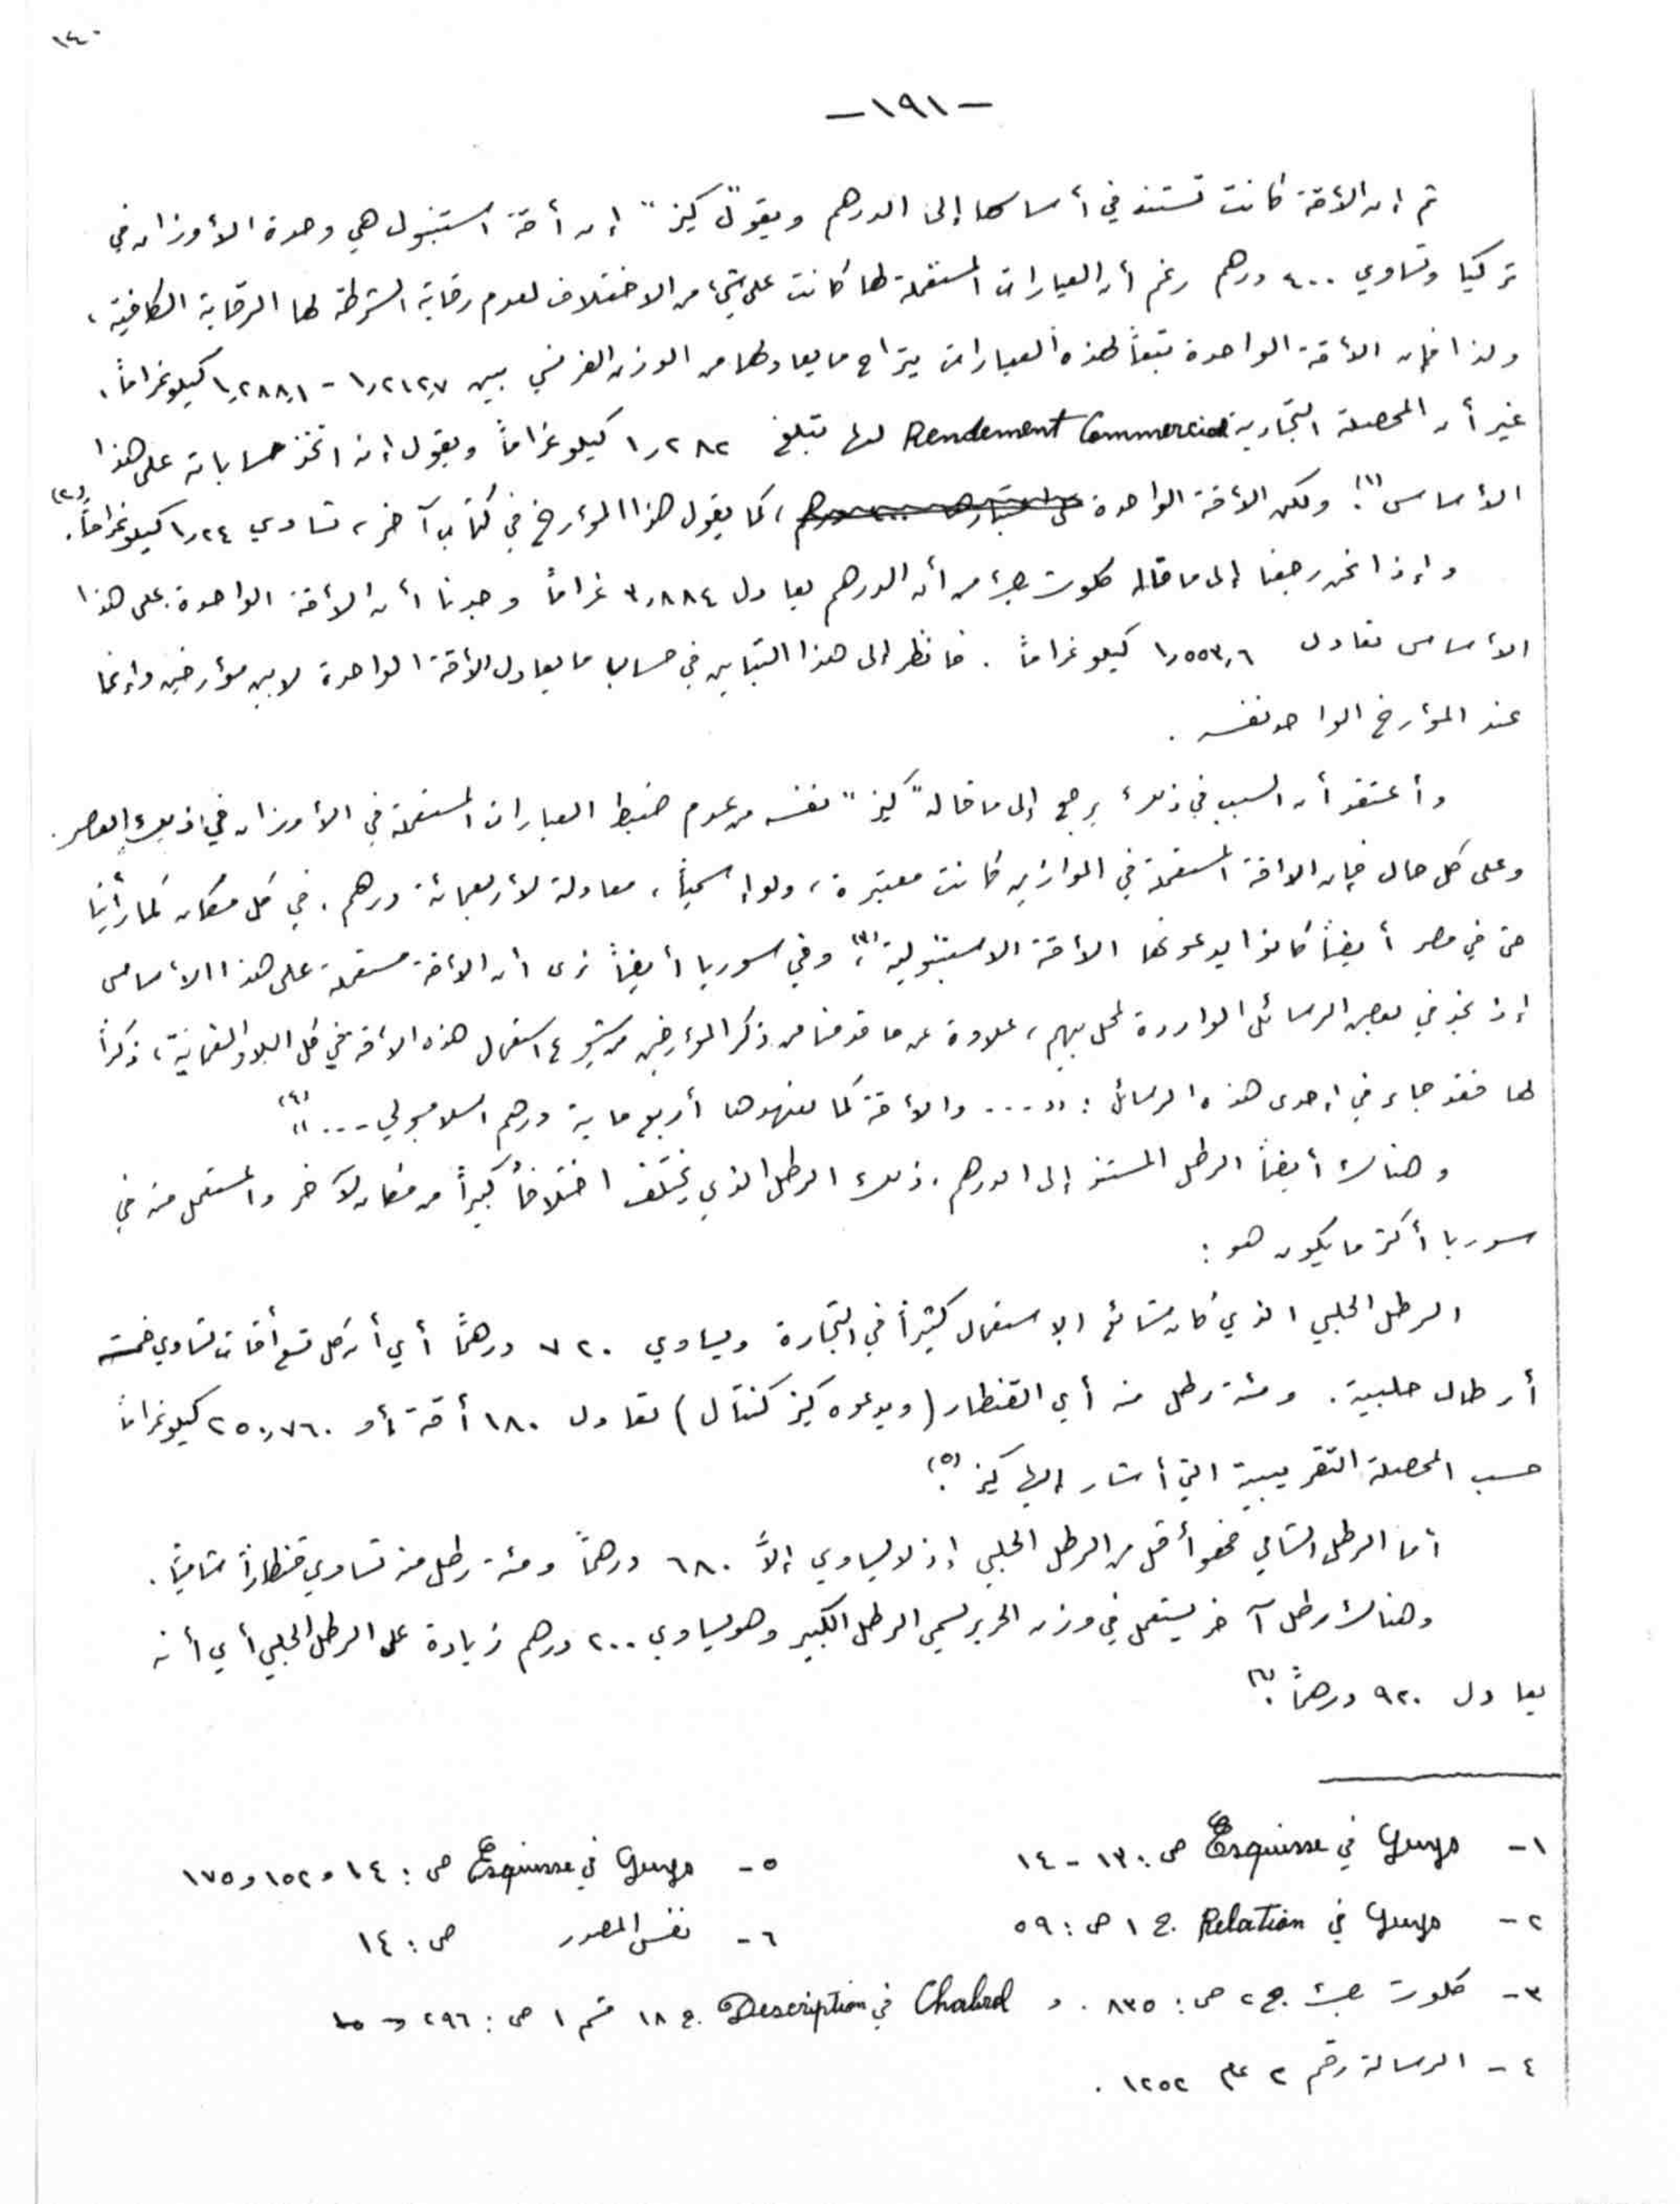 ١٤٠
-١٩١-
ثم إن الأقة كانت تستند في أساسها إلى الدرهم ويقول "كيز" إن أقة استنبول هي وحدة الأوزان في
تركيا وتساوي ٤٠٠ درهم رغم أن العيارات المستعملة لها كانت على شيء من الاختلاف لعدم رقابة الشرطة لها الرقابة الكافية،
ولذا فإن الأقة الواحدة تبعاً لهذه العيارات يتراوح ما يعادلها من الوزن الفرنسي بين ١٫٢١٢٫٧ - ١٫٢٨٨٫١ كيلوغراماً،
غير أن المحصلة التجارية Rendement Commercial لها تبلغ ١٫٢٨٢ كيلوغراماً ويقول إنه اتخذ حساباته على هذا
الأساس (١). ولكن الأقة الواحدة، كما يقول هذا المؤرخ في كتاب آخر، تساوي ١٫٢٤ كيلوغراماً. (٢)
وإذا نحن رجعنا إلى ما قاله كلوت بك من أن الدرهم يعادل ٣٫٨٨٤ غراماً وجدنا أن الأقة الواحدة على هذا
الأساس تعادل ١٫٥٥٣٫٦ كيلوغراماً. فانظر إلى هذا التباين في حساب ما يعادل الأقة الواحدة لا بين مؤرخين وإنما
عند المؤرخ الواحد نفسه.
وأعتقد أن السبب في ذلك يرجع إلى ما قاله "كيز" نفسه من عدم ضبط العيارات المستعملة في الأوزان في ذلك العصر.
وعلى كل حال فإن الاقة المستعملة في الموازين كانت معتبرة، ولو إسمياً، معادلة لأربعمائة درهم. في كل مكان كما رأينا
حتى في مصر أيضاً كانوا يدعونها الأقة الاستنبولية (٣)، وفي سوريا أيضاً نرى أن الأقة مستعملة على هذا الأساس
إذ نجد في بعض الرسائل الواردة لمحل بيهم، علاوة عن ما قدمنا من ذكر المؤرخين من شيوع استعمال هذه الاقة في كل البلاد العثمانية، ذكراً
لها فقد جاء في إحدى هذه الرسائل: "... والأقة كما تعهدوها أربع ماية درهم اسلامبولي ..." (٤)
وهناك أيضاً الرطل المستند إلى الدرهم. ذلك الرطل الذي يختلف اختلافاً كبيراً من مكان لآخر والمستعمل منه في
سوريا أكثر ما يكون هو:
الرطل الحلبي الذي كان شائع الاستعمال كثيراً في التجارة ويساوي ٧٢٠ درهماً أي أن كل تسع أقات تساوي خمسة
أرطال حلبية. ومئة رطل منه أي القنطار (ويدعوه كيز كنتال) تعادل ١٨٠ أقة أو ٢٥٠٫٧٦٠ كيلوغراماً
حسب المحصلة التقريبية التي أشار إليها كيز (٥).
أما الرطل الشامي فهو أقل من الرطل الحلبي إذ لا يساوي إلاَّ ٦٨٠ درهماً ومئة رطل منه تساوي قنطاراً شامياً.
وهناك رطل آخر يستعمل في وزن الحرير يسمى الرطل الكبير وهو يساوي ٢٠٠ درهم زيادة على الرطل الحلبي أي أنه
يعادل ٩٢٠ درهماً (٦).
١- Guys في Esquisse ص: ١٣ - ١٤
٢- Guys في Relation ج ١ ص: ٥٩
٣- كلوت بك ج ٢ ص: ٨٣٥. و Chabrol في Description ج ١٨ قسم ١ ص: ٢٩٦
٤- الرسالة رقم ٢ عام ١٢٥٢.
٥- Guys في Esquisse ص: ١٤ و ١٥٢ و ١٧٥
٦- نفس المصدر ص: ١٤